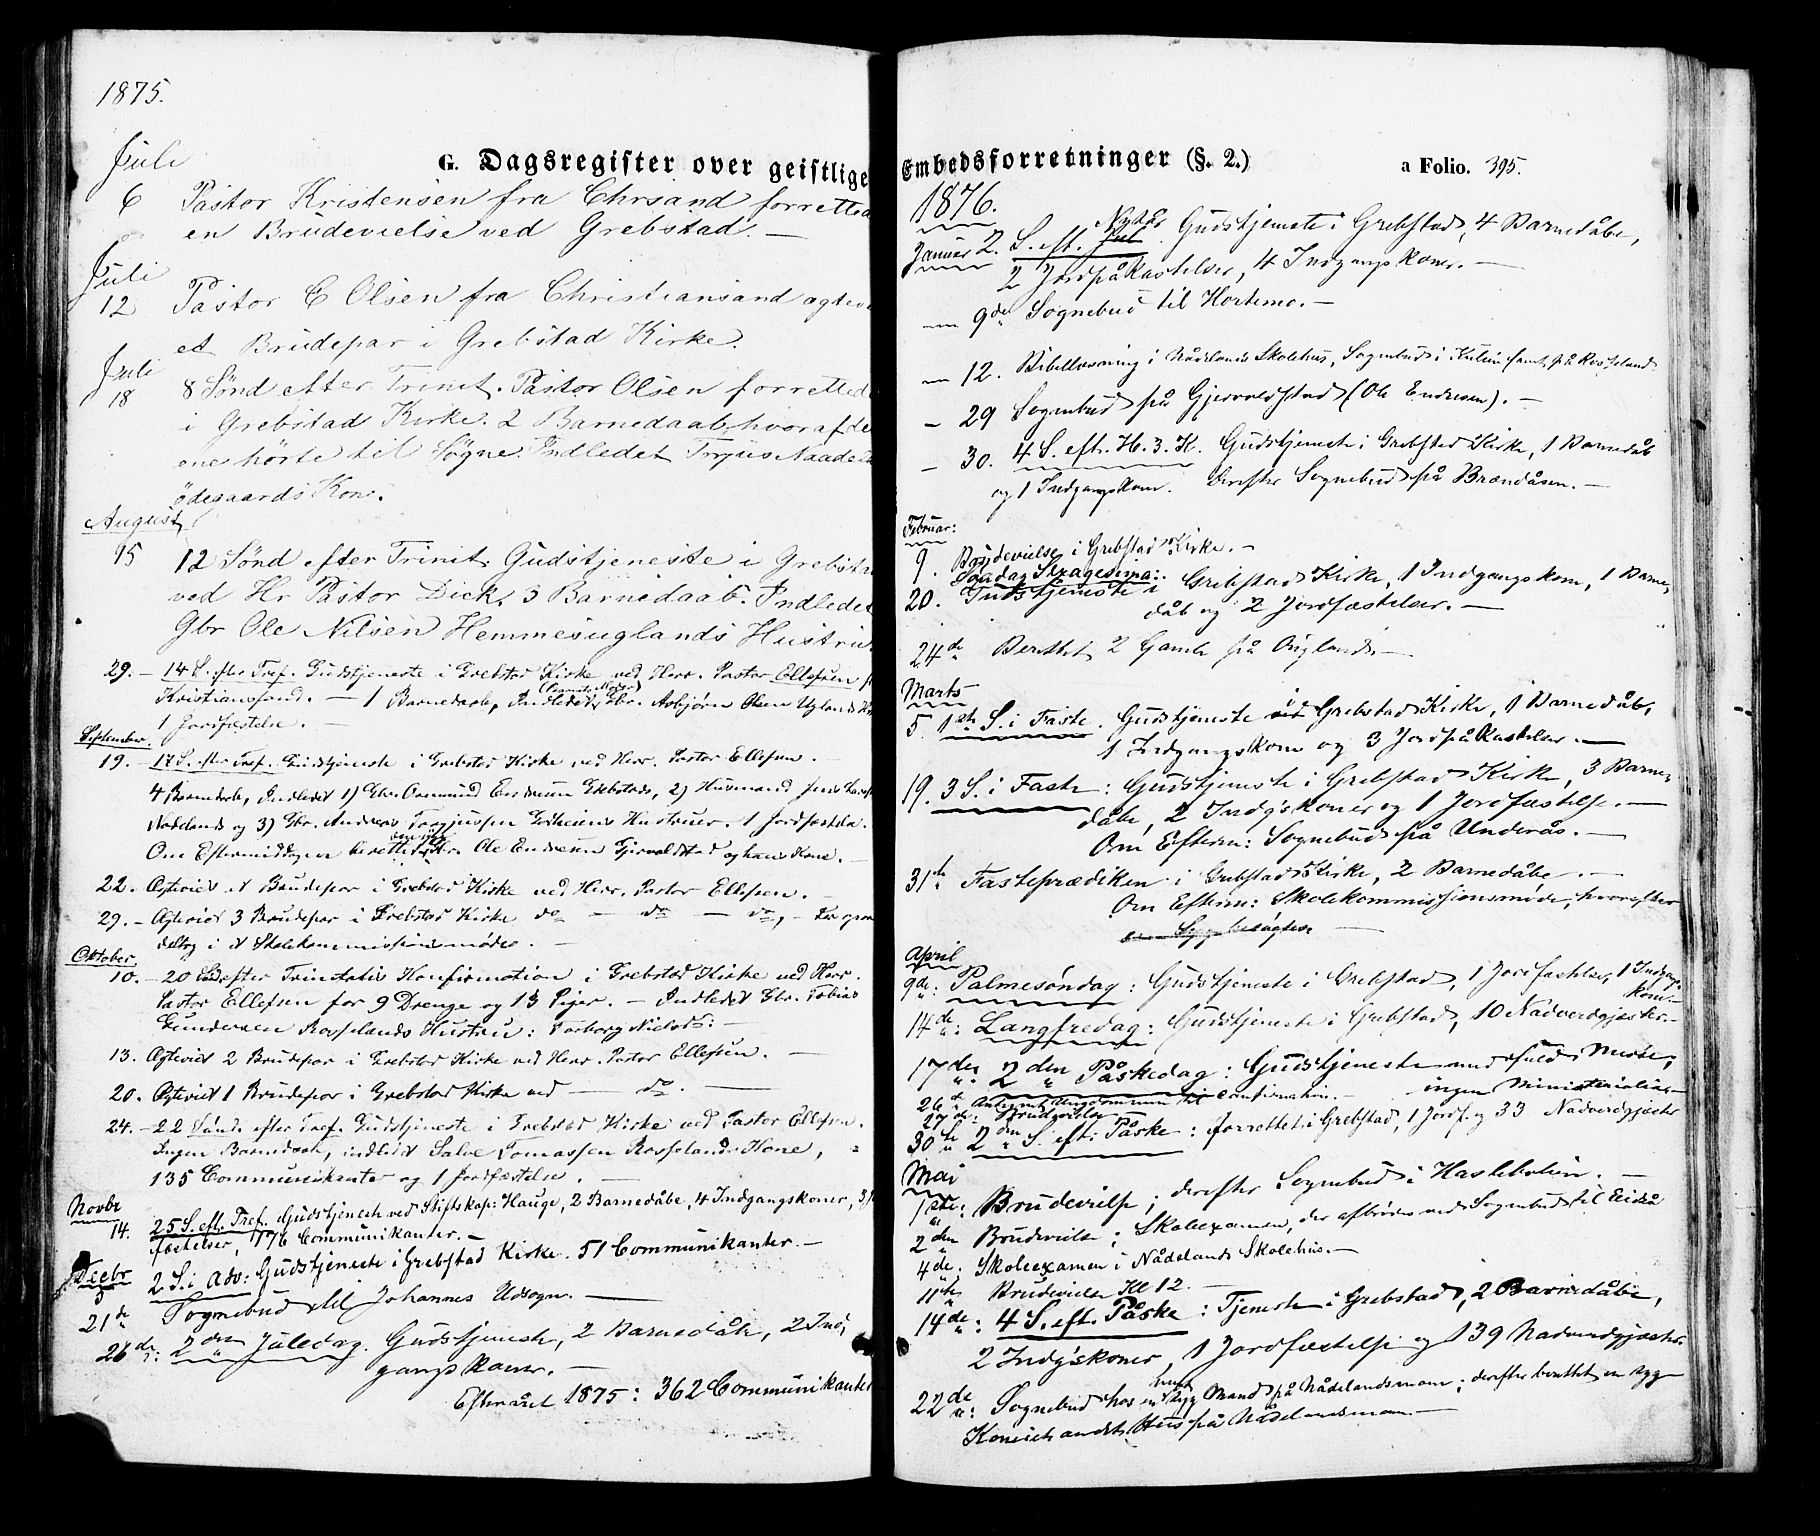 1875.
G. Dagsregister over geistlige
Juli
6 Pastor Kristensen fra Chrsand forretted
en Brudevielse ved Grebstad. —
Juli
12 Pastor C Olsen fra Christiansand
et Brudepar i Grebstad Kirke.
Juli
18 8 Sønd efter Trinit. Pastor Olsen forrettede
i Grebstad Kirke. 2 Barnedaab, hvoraf de
ene hörte til Søgne. Indledet
ödegaards Kone.
August
15 12 Sønd efter Trinit. Gudstjeneste i Grebsta
ved Hr Pastor Dick, 3 Barnedaab. Indledet
Gbr Ole Nilsen Hemmesuglands Hustru
29. – 14 S. efter Tref. Gudstjeneste i Grebstad Kirke ved Herr. Pastor Ellefsen
Kristianssand. — 1 Barnedaab, Indledet Gbr. Asbjørn Olsen Uglands
1 Jordfæstelse. —
September.
19. – 17 S. efter Tref. Gudstjeneste i Grebstad Kirke ved Herr. Pastor Ellefsen. —
4 Barnedaab, Indledet 1) Gbr. Osmund Grebstads, 2) Husmand Jens
Nodelands og 3) Gbr. Andreas Hustruer. 1 Jordfæstelse.
Om Eftermiddagen berettedes Ole og hans Kone. —
22. Egteviet et Brudepar i Grebstad Kirke ved Herr. Pastor Ellefsen.
29. – Egteviet 3 Brudepar i Grebstad Kirke do — do — do, –
deltog i et Skolekommissionsmøde. —
Oktober.
10. – 20 Sønd efter Trinitatis Konfirmation i Grebstad Kirke ved Herr.
Pastor Ellefsen for 9 Drenge og 13 Piger. – Indledet Gbr. Tobias
Gundersen Rosselands Hustru: Torborg —
13. Egteviet 2 Brudepar i Grebstad Kirke ved Herr. Pastor Ellefsen. —
20. Egteviet 1 Brudepar i Grebstad Kirke ved — do. —
24. – 22 Sønd. efter Tref. Gudstjeneste i Grebstad Kirke ved Pastor Ellefsen.
Ingen Barnedaab, indledet Salve Tomassen Rosselands Kone,
135 Communikanter og 1 Jordfæstelse. —
Novbr
14. 25 S. eft. Tref. Gudstjeneste ved Stiftskap: Hauge, 2 Barnedåbe, 4 Indgangskoner,
fæstelser, 176 Communikanter. –
Decbr
5 2 S. i Adv: Gudstjeneste i Grebstad Kirke. 51 Communikanter. –
21de Sognebud til Johannes Udsogn. —
26de: 2den Juledag. Gudstjeneste, 2 Barnedåb, 2 Ind,
gangskoner. —
Efteråret 1875: 362 Communikanter
Embedsforretninger (§. 2.) a Folio. 395.
1876.
Januar 2. S. eft. Jul Nytår Gudstjeneste i Grebstad, 4 Barnedåbe,
2 Jordpåkastelser, 4 Indgangskoner. —
— 9de Sognebud til Hortemo. –
— 12. Bibellæsning i Nådelands Skolehus, Sognebud i Kulien samt på Rosseland
– 29 Sognebud på Gjervoldstad (Ole Endresen). –
– 30. 4 S. eft. H. 3. K. Gudstjeneste i Grebstad Kirke, 1 Barnedåb
og 1 Indgangskone. Derefter Sognebud på Brændåsen. —
Februar:
9. Brudevielse i Grebstad Kirke. –
Søndag Sexagesima:
20. Gudstjeneste i Grebstad Kirke, 1 Indgangskone, 1 Barne,
dåb og 2 Jordfæstelser. —
24de Berettet 2 Gamle på Auglands —
Marts
5. 1ste S. i Faste. Gudstjeneste ved i Grebstad Kirke, 1 Barnedåb,
1 Indgangskone og 3 Jordpåkastelser. —
19. 3 S. i Faste: Gudstjeneste i Grebstad Kirke, 3 Barne,
dåbe, 2 Indg'skoner og 1 Jordfæstelse. —
Om Efterm: Sognebud på Underås. —
31te Fasteprædiken i Grebstad Kirke, 2 Barnedåbe. —
Om Efterm: Skolekommissionsmøde, hvorefter
Sygebesøgelse —
April
9de: Palmesøndag: Gudstjeneste i Grebstad, 1 Jordfæstelse, 1 Indgangs
kone. –
14de: Langfredag: Gudstjeneste i Grebstad, 10 Nadverdgjæster. —
17den 2den Påskedag: Gudstjeneste med fuld Messe,
ingen Ministerialia. —
26de Antegnet Ungdommen til Confirmation. —
27de: Brudevielse
30te 2den S. eft. Påske: forrettet i Grebstad, 1 Jordf. og 33 Nadverdgjæster
Mai
1ste: Brudevielse; derefter Sognebud i Haslebolien. —
2den Brudevielse; Skoleexamen, der afbrødes ved Sognebud til Eikså
4de. Skoleexamen i Nådelands Skolehus. —
11te Brudevielse Kl 12. —
14de: 4 S. eft. Påske: Tjeneste i Grebstad, 2 Barnedåbe,
2 Indg'skoner, 1 Jordfæstelse og 139 Nadverdgjæster.
22de: Sognebud hos en syg Mand på Nådelandsmoen; derefter berettet en syg
Kone i et andet Hus på Nådelandsmoen. —